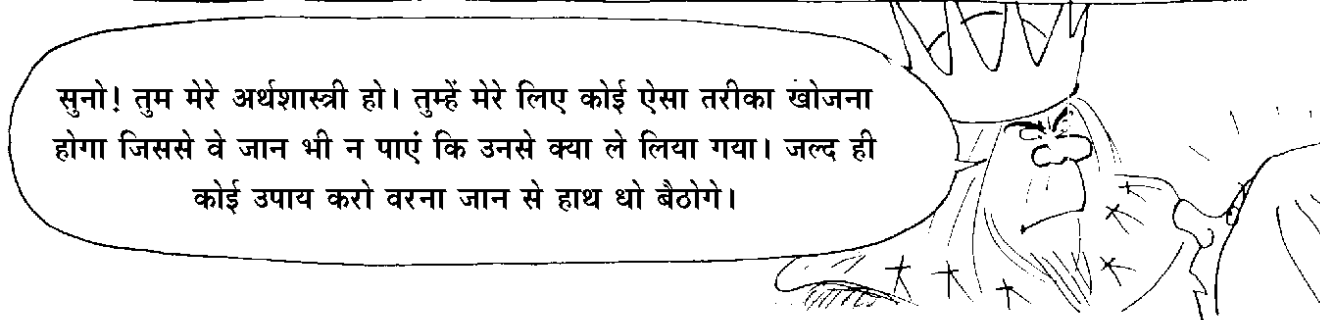 सुनो! तुम मेरे अर्थशास्त्री हो। तुम्हें मेरे लिए कोई ऐसा तरीका खोजना
होगा जिससे वे जान भी न पाएं कि उनसे क्या ले लिया गया। जल्द ही
कोई उपाय करो वरना जान से हाथ धो बैठोगे।